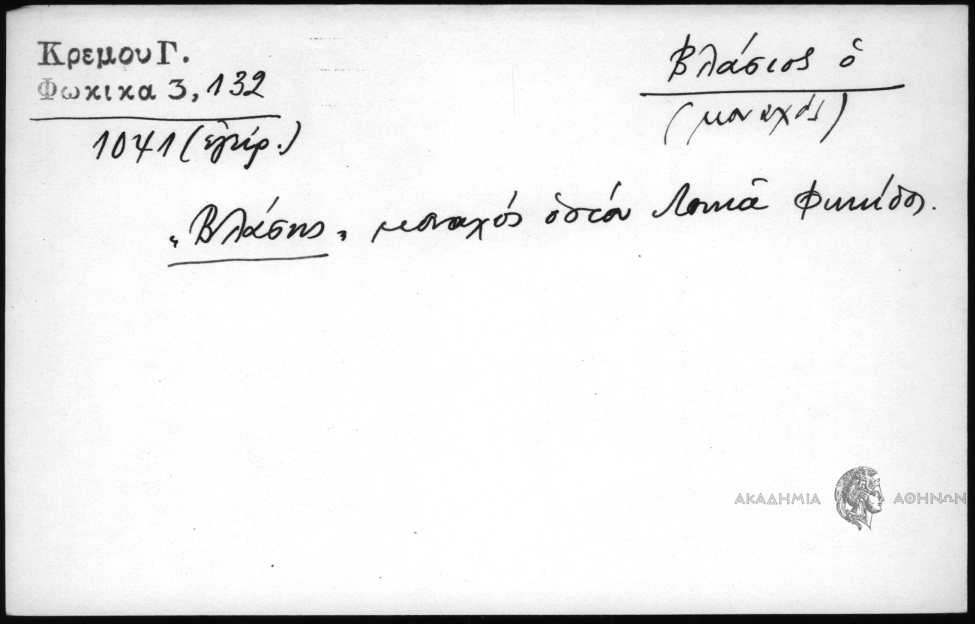 Κρεμου Γ.
Φωκικα 3, 132
1041 (ἔγγρ.)
Βλάσιος ὁ
(μοναχός)
"Βλάσης" μοναχός ὁσίου Λουκᾶ Φωκίδος.
ΑΚΑΔΗΜΙΑ ΑΘΗΝΩΝ